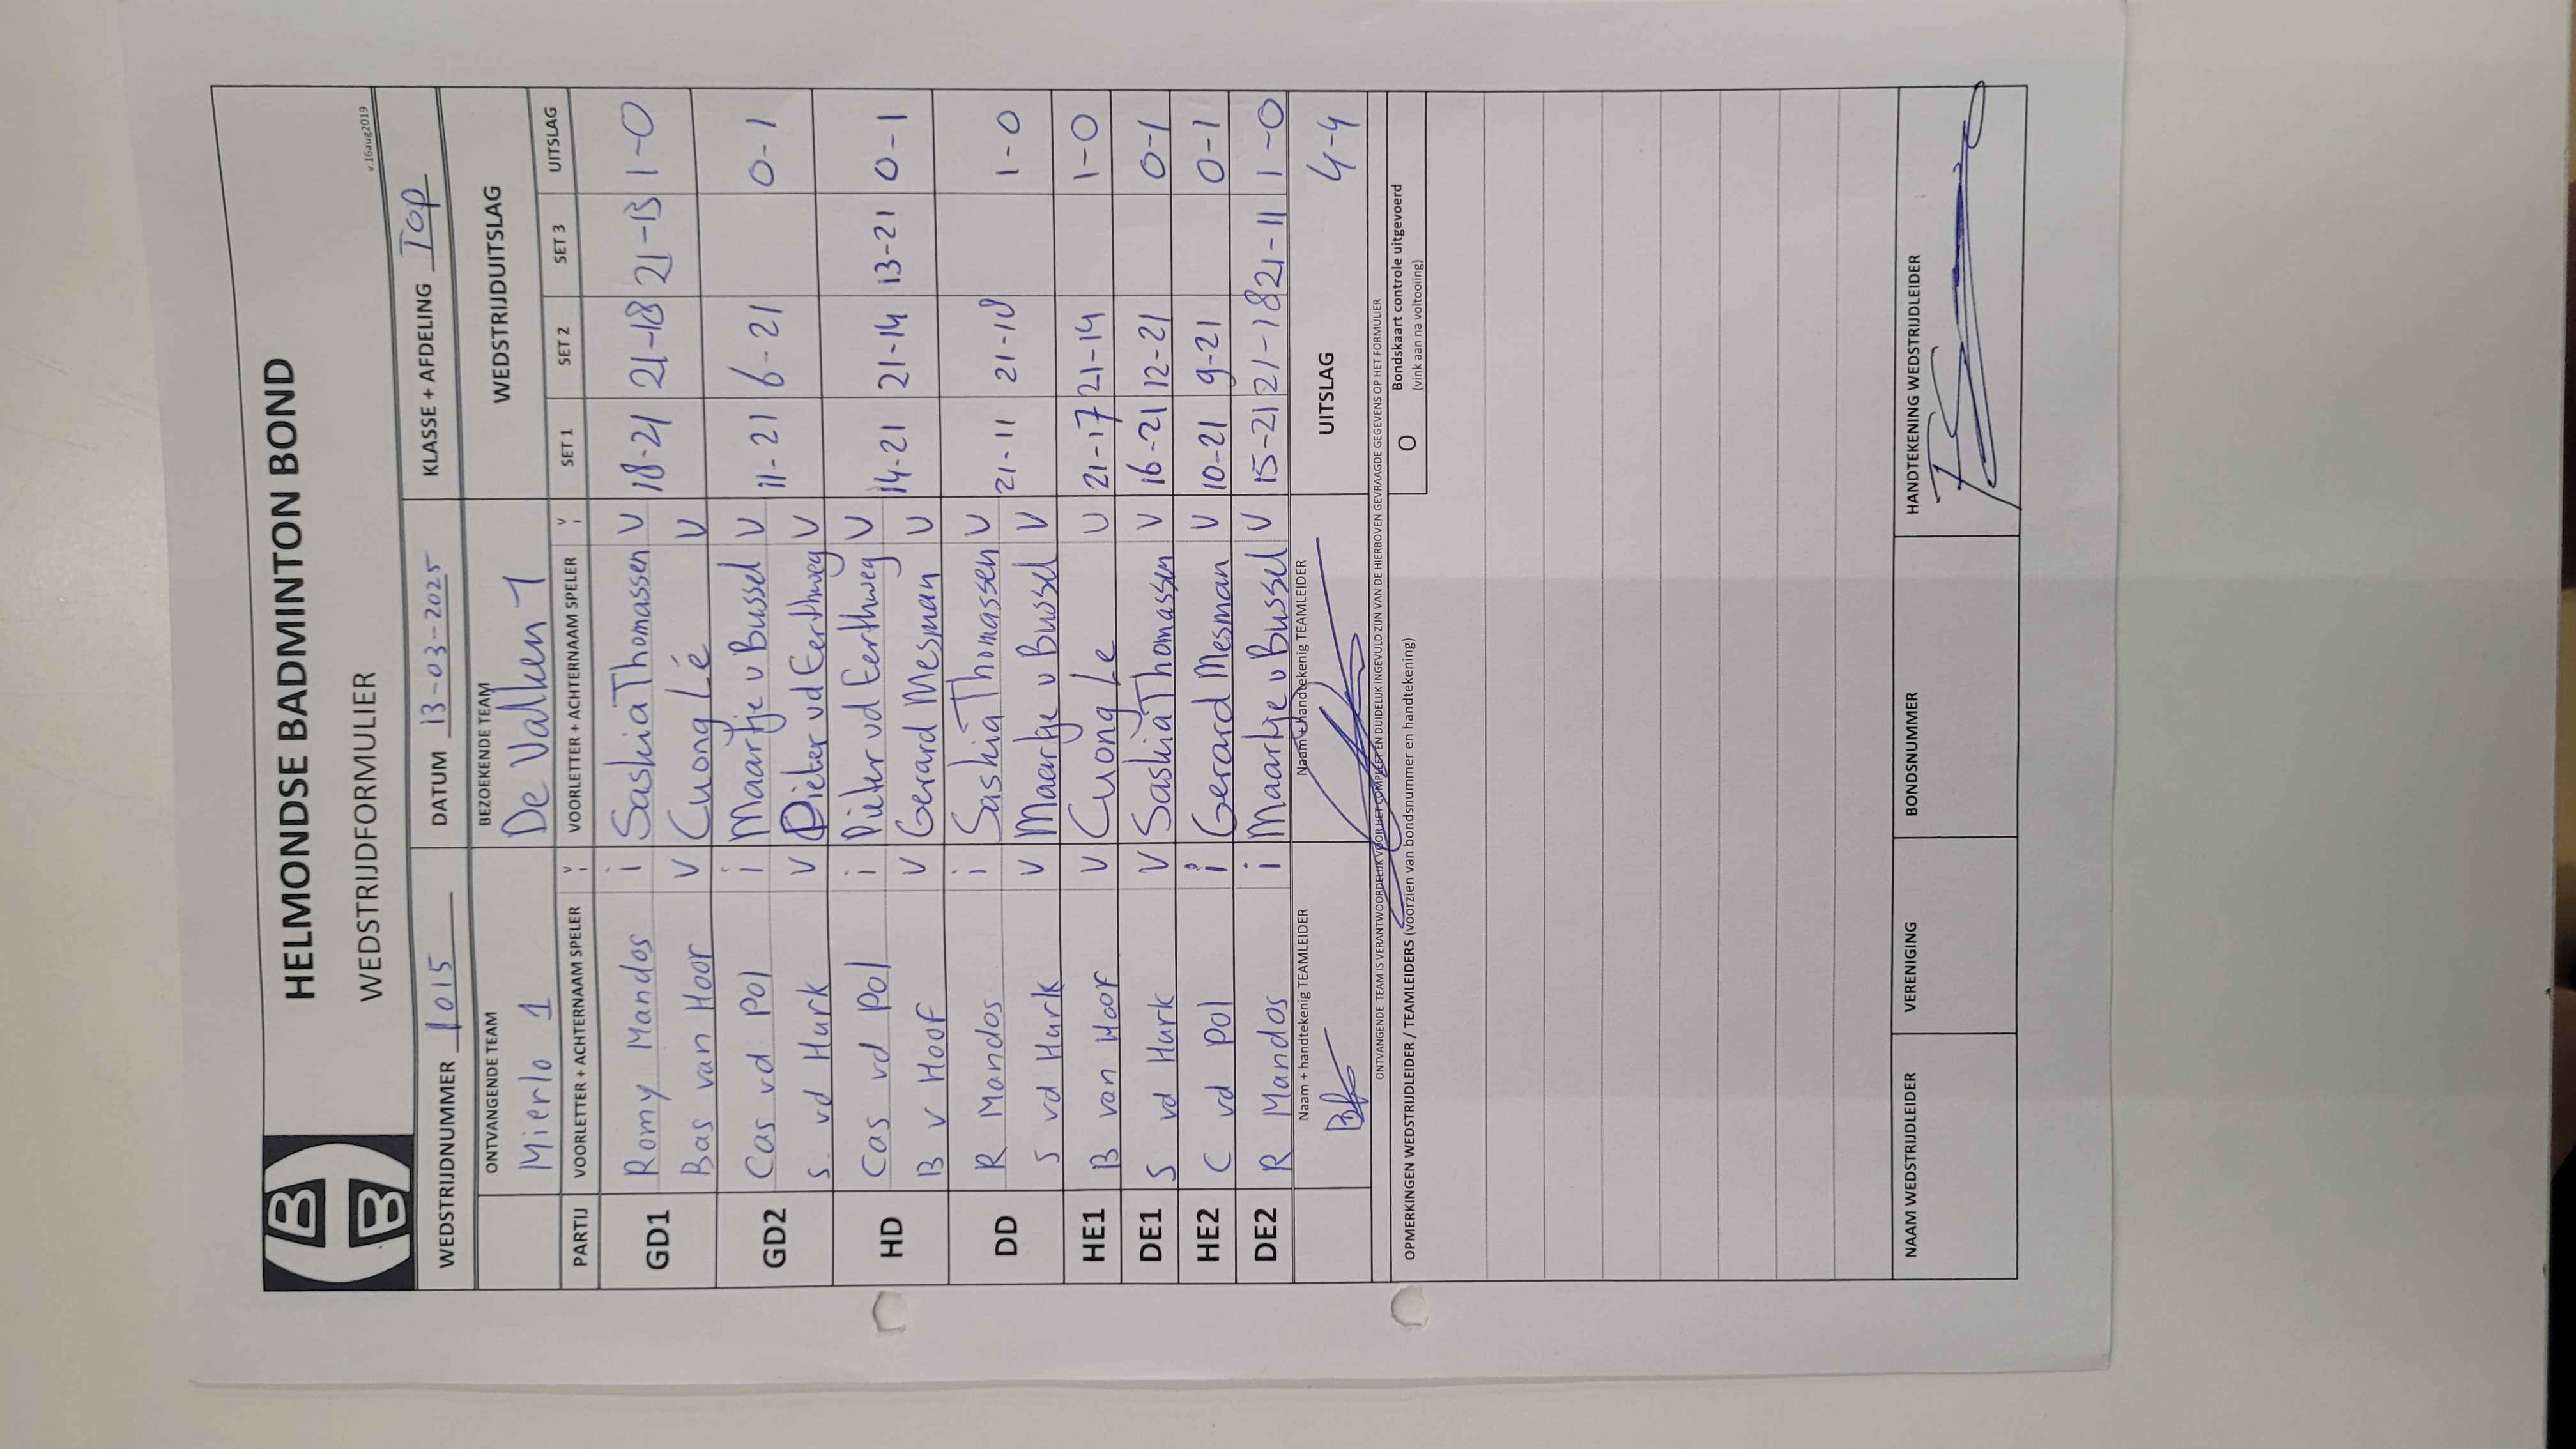 HELMONDSE BADMINTON BOND
WEDSTRIJDFORMULIER
v.16aug2019
WEDSTRIJDNUMMER 1015 DATUM 13-03-2025 KLASSE + AFDELING Top
ONTVANGENDE TEAM BEZOEKENDE TEAM WEDSTRIJDUITSLAG
Mierlo 1 De Valken 1
PARTIJ VOORLETTER + ACHTERNAAM SPELER V I VOORLETTER + ACHTERNAAM SPELER V I SET 1 SET 2 SET 3 UITSLAG
GD1 Romy Mandos i Saskia Thomassen V 18-21 21-18 21-13 1-0
Bas van Hoof V Cuong Lé V
GD2 Cas vd Pol i Maartje v Bussel V 11-21 6-21 0-1
S. vd Hurk V Pieter vd Eerthweg V
HD Cas vd Pol i Pieter vd Eerthweg V 14-21 21-14 13-21 0-1
B v Hoof V Gerard Mesman V
DD R Mandos i Saskia Thomassen V 21-11 21-18 1-0
S vd Hurk V Maartje v Bussel V
HE1 B van Hoof V Cuong Le V 21-17 21-14 1-0
DE1 S vd Hurk V Saskia Thomassen V 16-21 12-21 0-1
HE2 C vd Pol i Gerard Mesman V 10-21 9-21 0-1
DE2 R Mandos i Maartje v Bussel V 15-21 21-18 21-11 1-0
Naam + handtekenig TEAMLEIDER Naam + handtekenig TEAMLEIDER UITSLAG 4-4
ONTVANGENDE TEAM IS VERANTWOORDELIJK VOOR HET COMPLEET EN DUIDELIJK INGEVULD ZIJN VAN DE HIERBOVEN GEVRAAGDE GEGEVENS OP HET FORMULIER
OPMERKINGEN WEDSTRIJDLEIDER / TEAMLEIDERS (voorzien van bondsnummer en handtekening) O Bondskaart controle uitgevoerd
(vink aan na voltooiing)
NAAM WEDSTRIJDLEIDER VERENIGING BONDSNUMMER HANDTEKENING WEDSTRIJDLEIDER